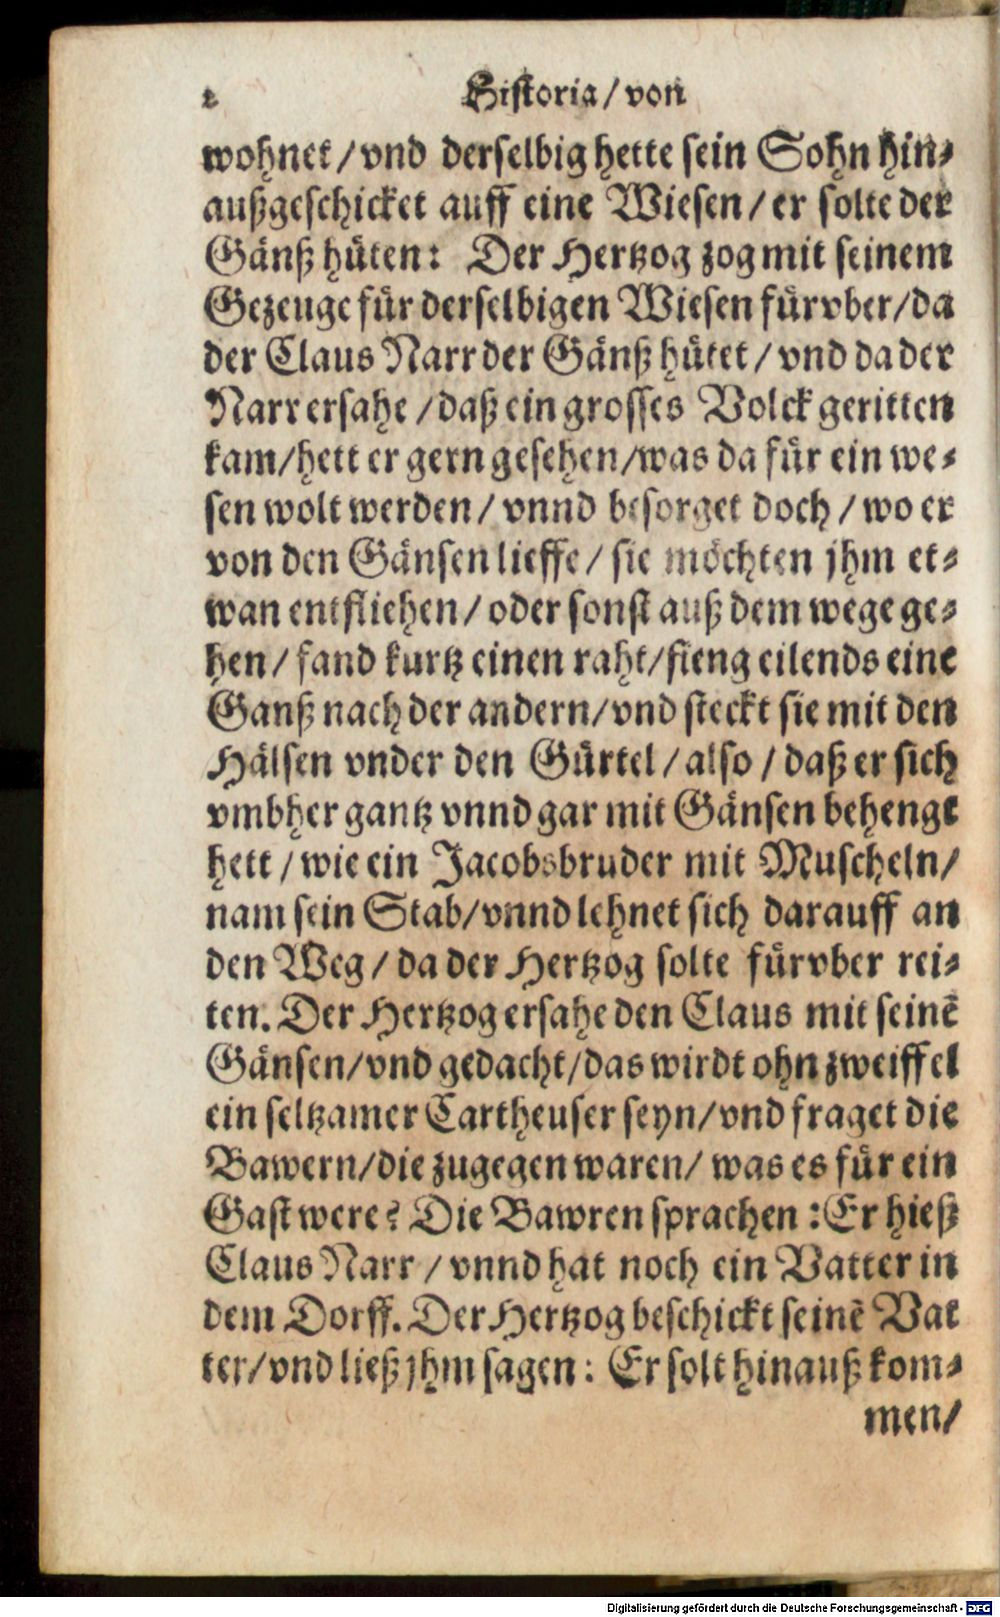 2 Historia / von
wohnet / vnd derselbig hette sein Sohn hin⸗
außgeschicket auff eine Wiesen / er solte der
Gänß hüten: Der Hertzog zog mit seinem
Gezeuge für derselbigen Wiesen fürvber / da
der Claus Narr der Gänß hütet / vnd da der
Narr ersahe / daß ein grosses Volck geritten
kam / hett er gern gesehen / was da für ein we⸗
sen wolt werden / vnnd besorget doch / wo er
von den Gänsen lieffe / sie möchten jhm et⸗
wan entfliehen / oder sonst auß dem wege ge⸗
hen / fand kurtz einen raht / fieng eilends eine
Ganß nach der andern / vnd steckt sie mit den
Hälsen vnder den Gürtel / also / daß er sich
vmbher gantz vnnd gar mit Gänsen behengt
hett / wie ein Jacobsbruder mit Muscheln /
nam sein Stab / vnnd lehnet sich darauff an
den Weg / da der Hertzog solte fürvber rei⸗
ten. Der Hertzog ersahe den Claus mit seinē
Gänsen / vnd gedacht / das wirdt ohn zweiffel
ein seltzamer Cartheuser seyn / vnd fraget die
Bawern / die zugegen waren / was es für ein
Gast were? Die Bawren sprachen: Er hieß
Claus Narr / vnnd hat noch ein Vatter in
dem Dorff. Der Hertzog beschickt seinē Vat
ter / vnd ließ jhm sagen: Er solt hinauß kom⸗
men /
Digitalisierung gefördert durch die Deutsche Forschungsgemeinschaft - DFG